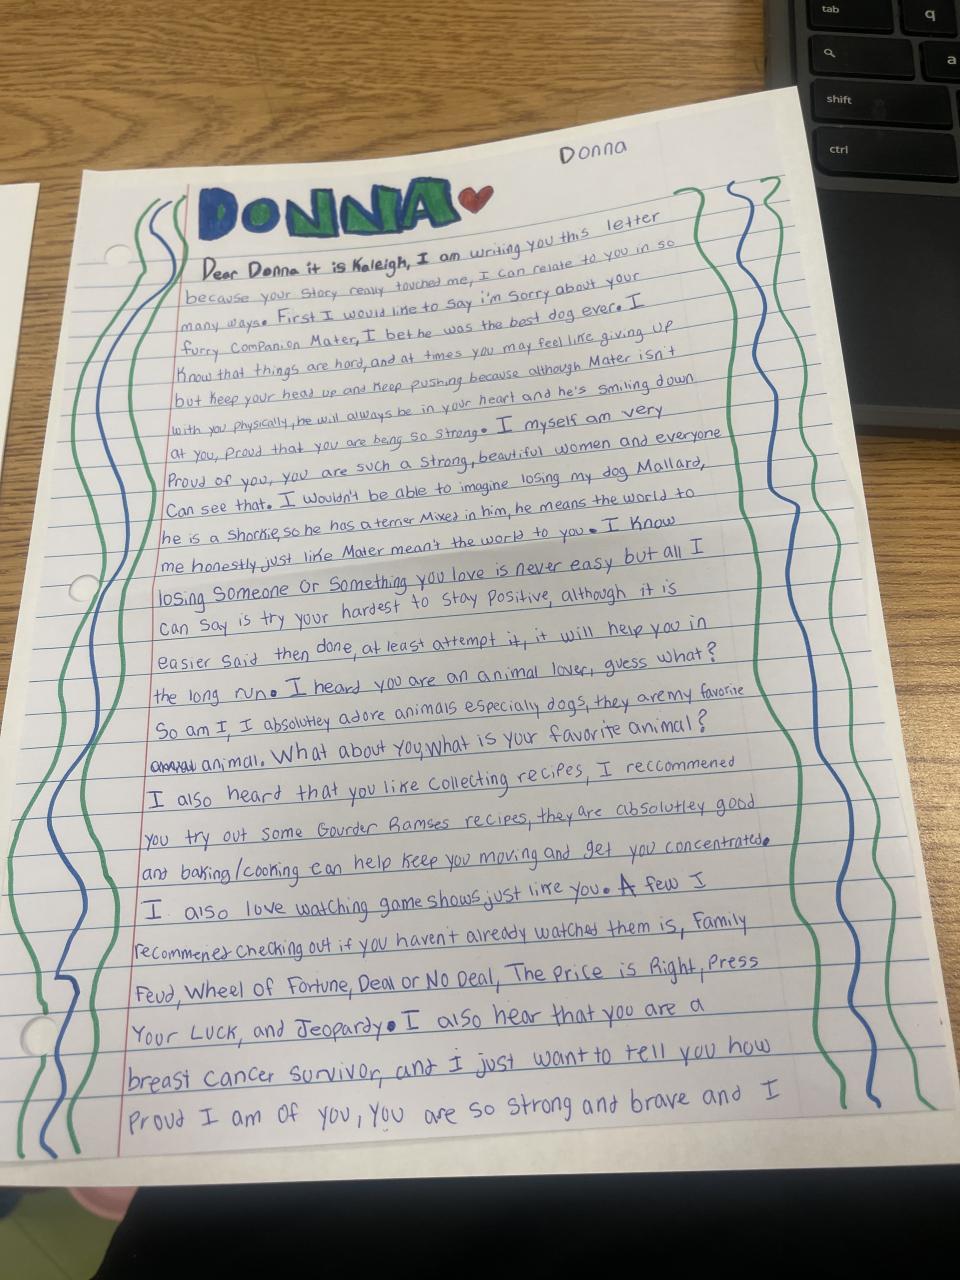 tab
q
a
shift
ctrl
Donna
DONNA
Dear Donna it is Kaleigh, I am writing you this letter
because your story really touched me, I can relate to you in so
many ways. First I would like to say i'm sorry about your
furry companion Mater, I bet he was the best dog ever. I
know that things are hard, and at times you may feel like giving up
but keep your head up and keep pushing because although Mater isn't
with you physically, he will always be in your heart and he's smiling down
at you, proud that you are being so strong. I myself am very
proud of you, you are such a strong, beautiful women and everyone
can see that. I wouldn't be able to imagine losing my dog Mallard,
he is a shorkie, so he has a terrier mixed in him, he means the world to
me honestly just like Mater mean't the world to you. I know
losing someone or something you love is never easy but all I
can say is try your hardest to stay positive, although it is
easier said then done, at least attempt it, it will help you in
the long run. I heard you are an animal lover, guess what?
So am I, I absolutley adore animals especially dogs, they are my favorite
animal. What about you, what is your favorite animal?
I also heard that you like collecting recipes, I reccommened
you try out some Gourder Ramses recipes, they are absolutley good
and baking/cooking can help keep you moving and get you concentrated.
I also love watching game shows just like you. A few I
recommened checking out if you haven't already watched them is, Family
Feud, Wheel of Fortune, Deal or No Deal, The Price is Right, Press
Your Luck, and Jeopardy. I also hear that you are a
breast cancer survivor, and i just want to tell you how
proud I am of you, you are so strong and brave and I